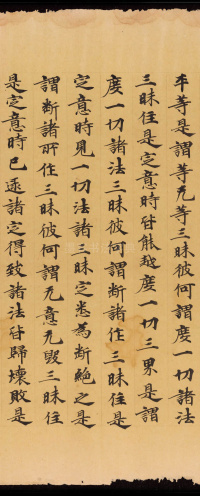 平等是謂等无等三昧彼何謂度一切諸法
三昧住是定意時皆能越度一切三界是謂
度一切諸法三昧彼何謂斷諸住三昧住是
定意時見一切法諸三昧定悉為斷絶之是
謂斷諸所住三昧彼何謂无意无毀三昧住
是定意時已逮諸定得致諸法皆歸壞敗是